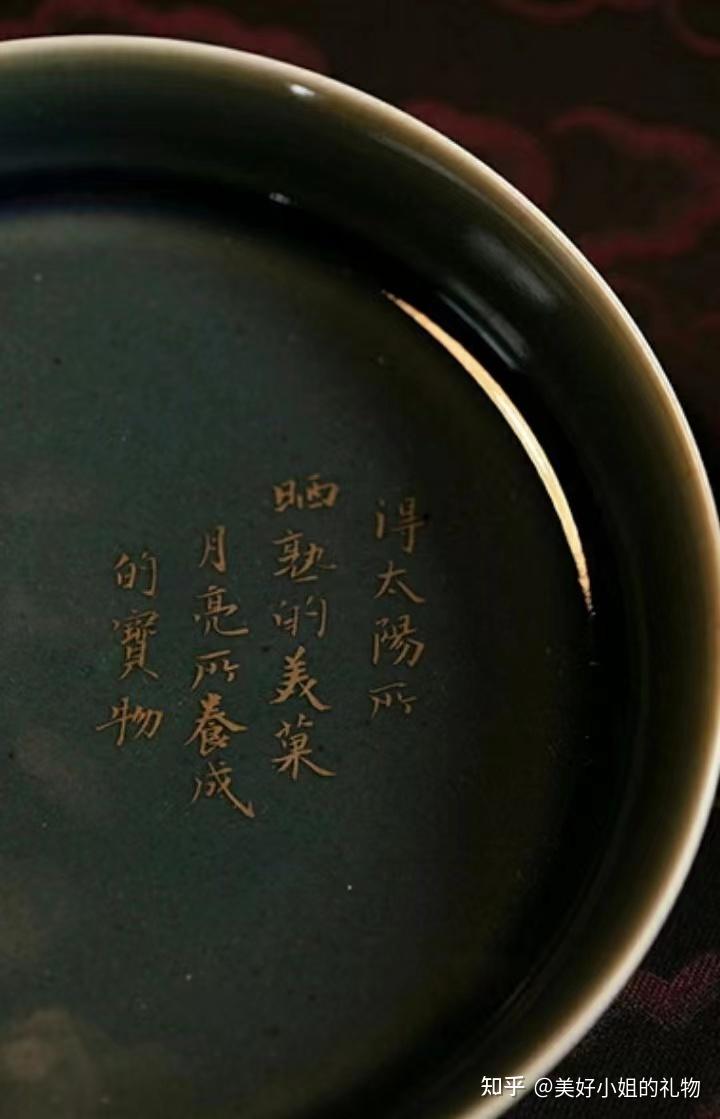 得太陽所
晒熟的美菓
月亮所養成
的寶物
知乎 @美好小姐的礼物